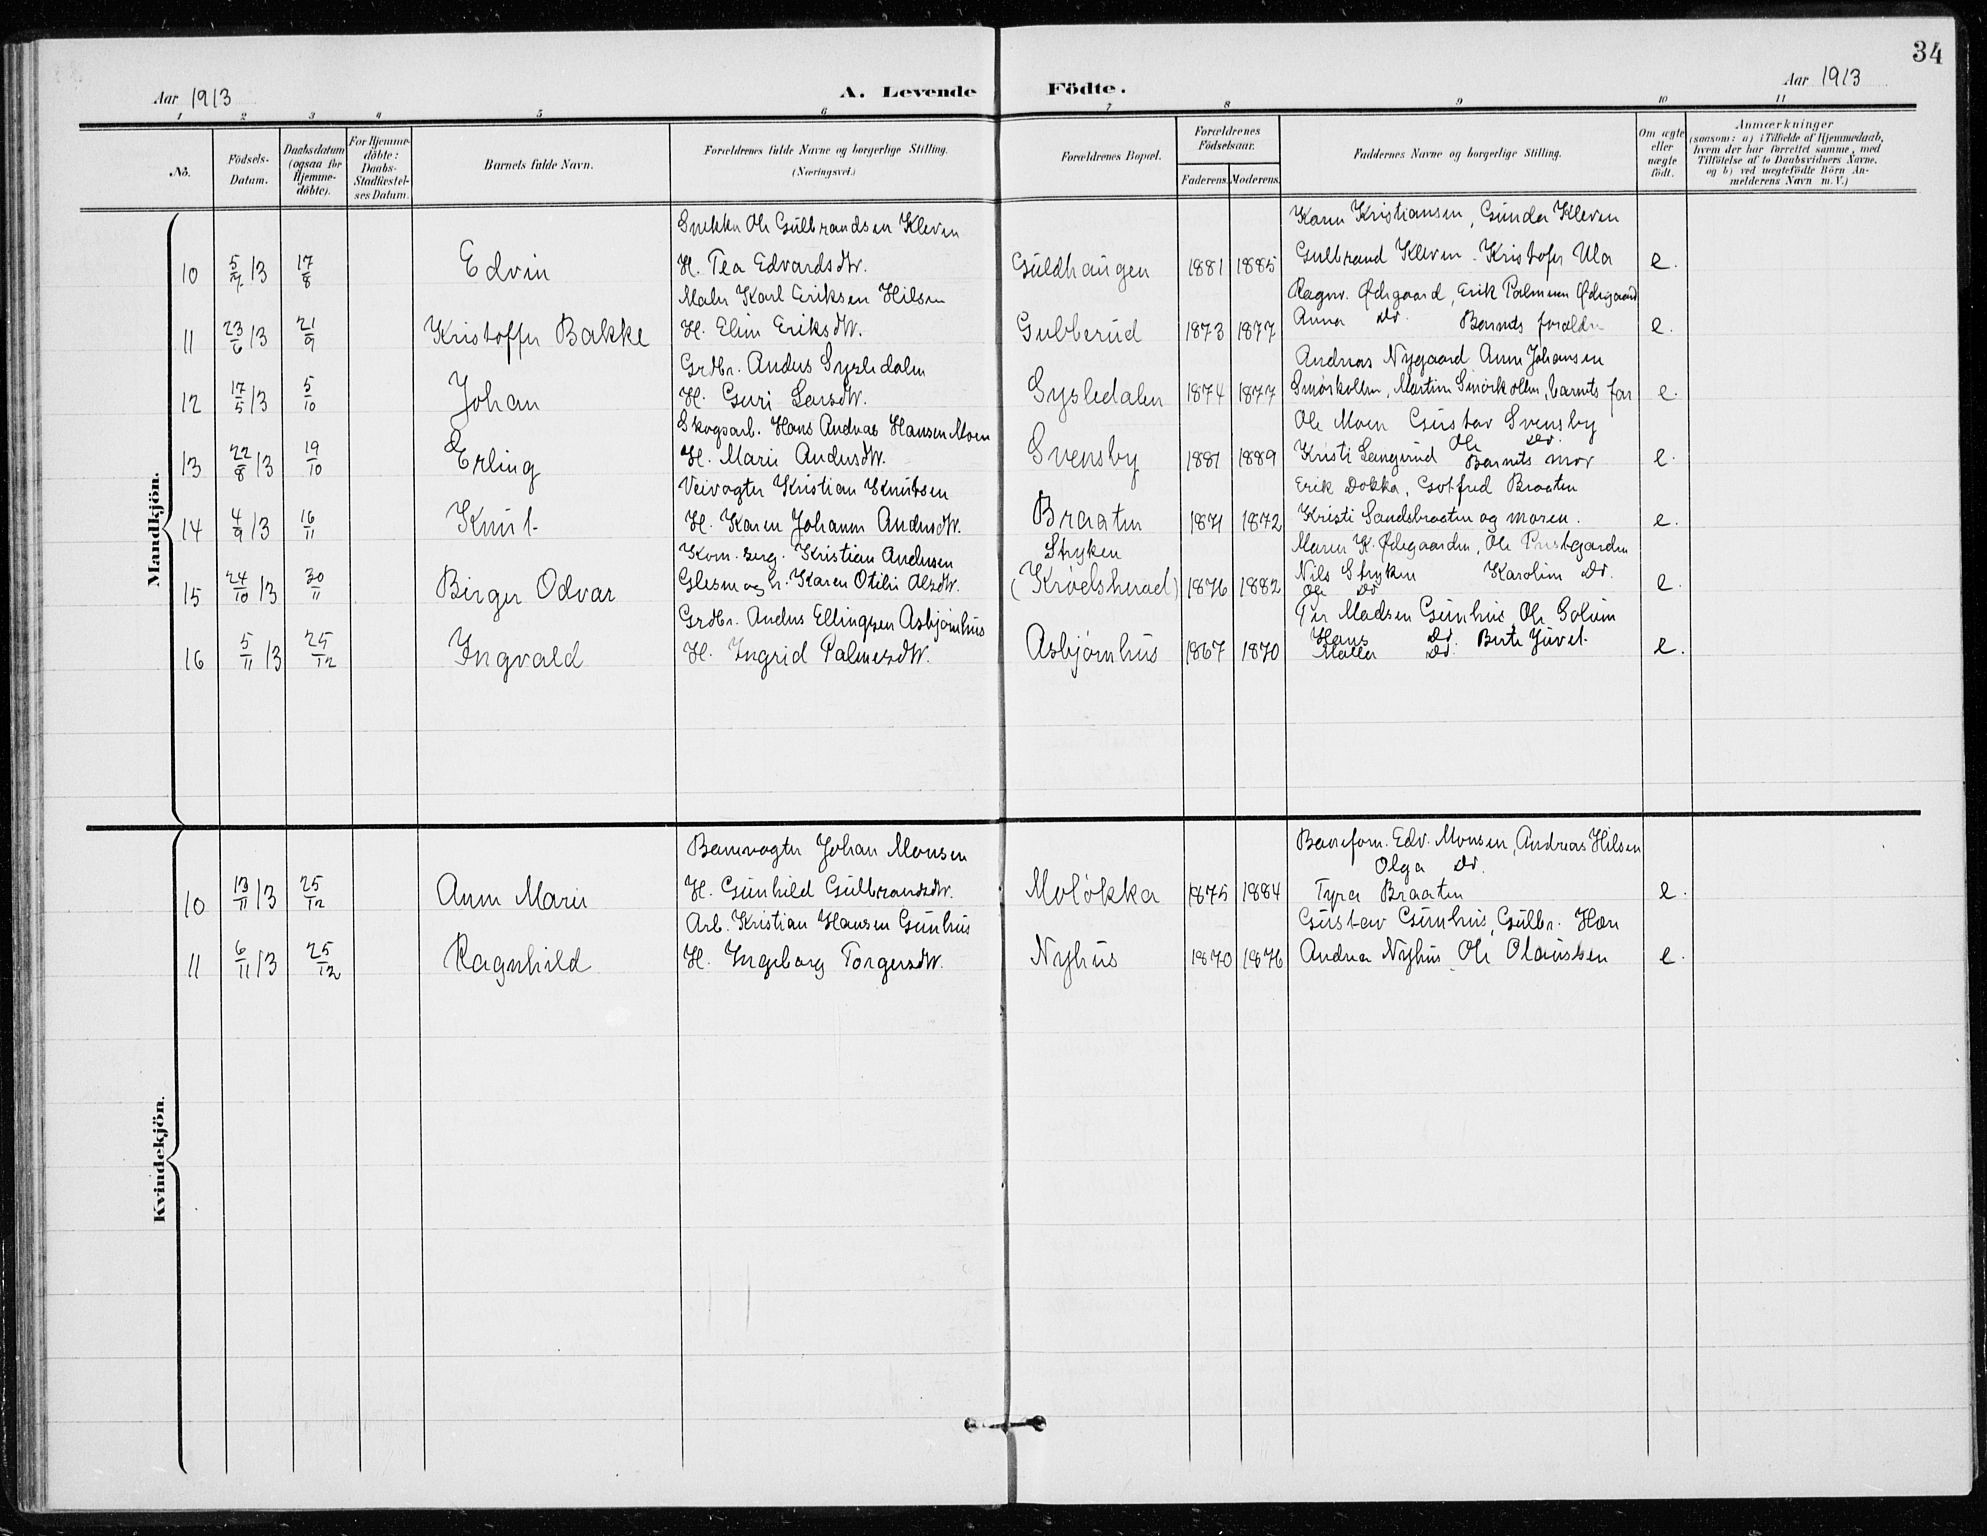 34
Aar 1913 A. Levende Födte. Aar 1913
1 2 3 4 5 6 7 8 9 10 11
No. Födsels-Datum. Daabsdatum (ogsaa for Hjemme-döbte). For Hjemme-döbte: Daabs-Stadfæstel-ses Datum. Barnets fulde Navn. Forældrenes fulde Navne og borgerlige Stilling. (Næringsvei.) Forældrenes Bopæl. Forældrenes Födselsaar. Faderens. Moderens. Faddernes Navne og borgerlige Stilling. Om ægte eller uægte födt. Anmærkninger (saasom: a) i Tilfælde af Hjemmedaab, hvem der har forrettet samme, med Tilföielse af to Daabsvidners Navne, og b) ved uægtefödte Börn An-melderens Navn m. V.)
Mandkjön.
Snekker Ole Gulbrandsen Kleven Karen Kristiansen, Gunda Kleven
10 5/7 13 17/8 Edvin H. Tea Edvardsdtr. Guldhaugen 1881 1885 Gulbrand Kleven. Kristofer Ula e.
Maler Karl Eriksen Hilsen Ragnv. Ødegaard, Erik Palmesen Ødegaard
11 23/6 13 21/9 Kristoffer Bakke H. Eline Eriksdtr. Gubberud 1873 1877 Anna Do. Barnets foræld e.
Grdbr. Anders Sysledalen Andreas Nygaard Anne Johansen
12 17/5 13 5/10 Johan H. Guri Larsdtr. Sysledalen 1874 1877 Smørkollen, Martin Smørkollen, barnets far e.
Skogsarb. Hans Andreas Hansen Moen Ole Moen Gustav Svensby
13 22/8 13 19/10 Erling H. Marie Andersdtr. Svensby 1881 1889 Kristi Langerud Ole Do. Barnets mor e.
Veivogter Kristian Knutsen Erik Dokka, Gotfred Braaten
14 4/9 13 16/11 Knut H. Karen Johanne Andersdtr. Braaten 1871 1872 Kristi Sandsbraaten og moren. e.
Kom. serg. Kristian Andersen Stryken Maren K. Ødegaarden, Ole Prestegarden
15 24/10 13 30/11 Birger Odvar Glesne og h. Karen Otilie Olsdtr. (Krødsherad) 1876 1882 Nils Stryken Karoline Do. Ole Do e.
Grdbr. Anders Ellingsen Asbjørnhus Per Madsen Gunhus, Ole Solum
16 5/11 13 25/12 Ingvald H. Ingrid Palmesdtr. Asbjørnhus 1867 1870 Hans Do. Birte Juvet. Do. e.
Kvindekjön.
Banevogter Johan Monsen Baneform. Edv. Monsen, Andreas Hilsen
Olga Do.
10 13/11 13 25/12 Anne Marie H. Gunhild Gulbrandsdtr. Moløkka 1875 1884 Tyra Braaten e.
Arb. Kristian Hansen Gunhus Gustav Gunhus, Gulbr. Horn
11 6/11 13 25/12 Ragnhild H. Ingeborg Torgersdtr. Nyhus 1870 1876 Andrea Nyhus Ole Olaussen e.